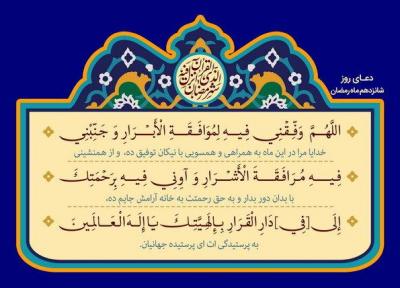 دعای روز
شانزدهم ماه رمضان
شهر رمضان الذی انزل فیه القرآن
اَللّهُمَّ وَفِّقْنِي فِيهِ لِمُوَافَقَةِ الْأَبْرَارِ وَ جَنِّبْنِي
خدایا مرا در این ماه به همراهی و همسویی با نیکان توفیق ده، و از همنشینی
فِيهِ مُرَافَقَةَ الْأَشْرَارِ وَ آوِنِي فِيهِ بِرَحْمَتِكَ
با بدان دور بدار و به حق رحمتت به خانه آرامش جایم ده،
إِلَى [فِي] دَارِ الْقَرَارِ بِإِلَهِيَّتِكَ يَا إِلَهَ الْعَالَمِينَ
به پرستیدگی ات ای پرستیده جهانیان.